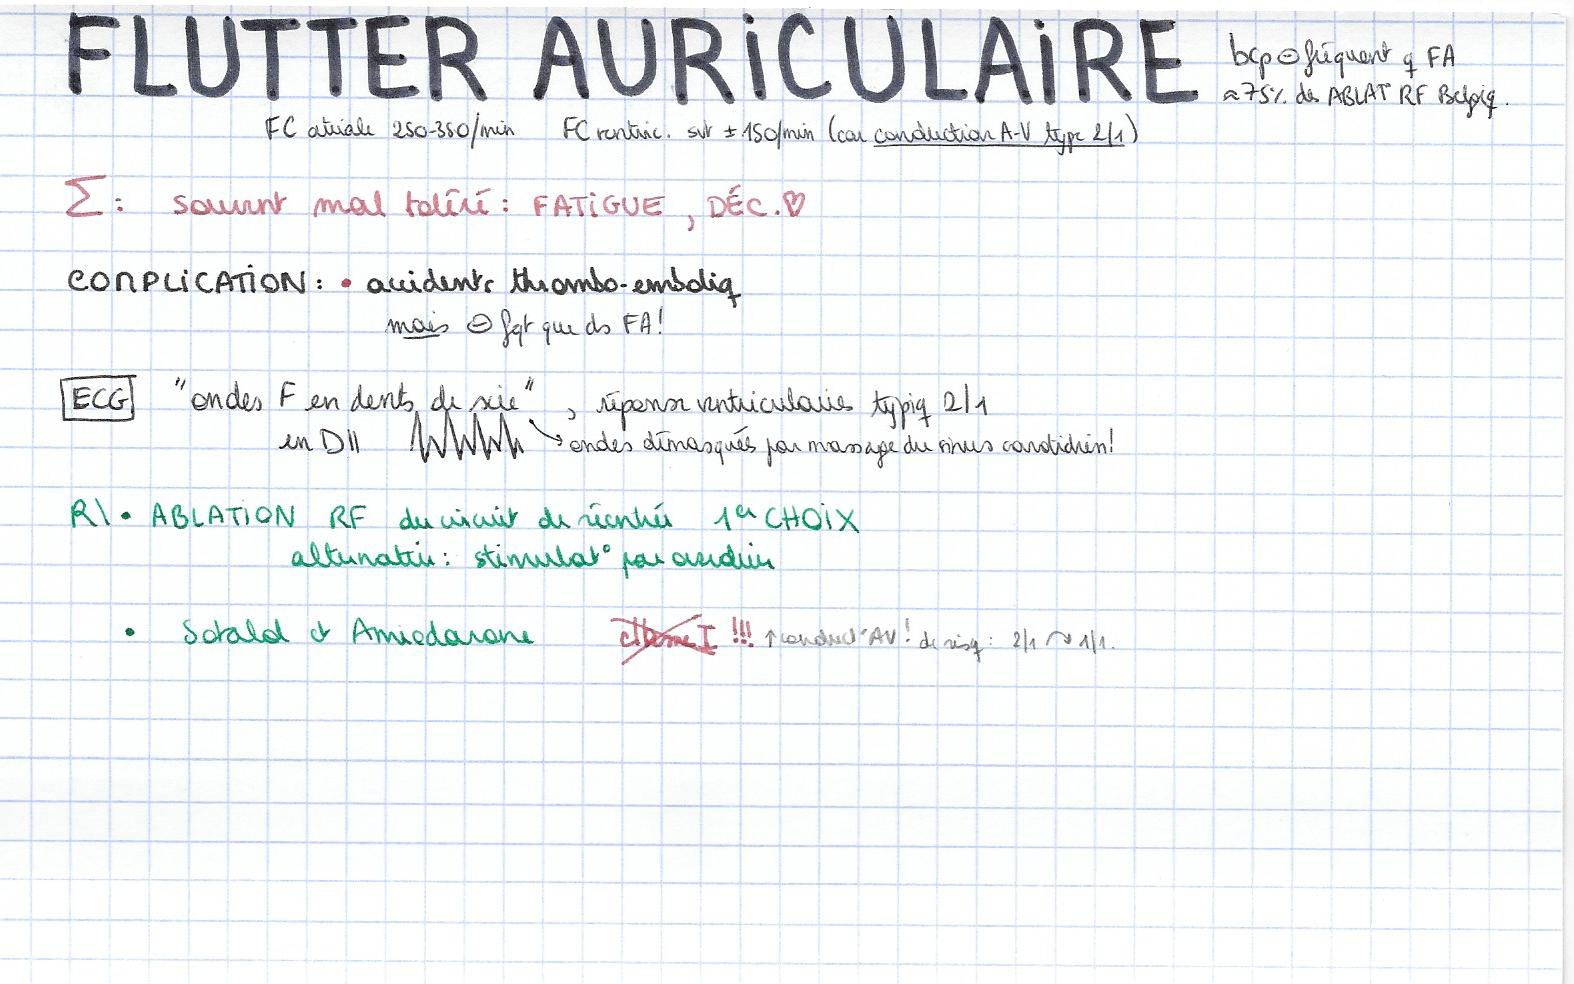 FLUTTER AURiCULAiRE
bcp ⊖ fréquent q FA
≈75% des ABLAT° RF Belgiq.
FC atriale 250-350/min FC ventric. svt ±150/min (car conduction A-V type 2/1)
Σ: souvent mal toléré: FATiGUE, DÉC.♡
COMPLiCATiON: • accidents thrombo-emboliq
mais ⊖ fqt que ds FA!
ECG "ondes F en dents de scie", réponse ventriculaire typiq 2/1
en DII → ondes démasqués par massage du sinus carotidien!
R\ • ABLATiON RF du circuit de réentrée 1er CHOiX
alternative: stimulat° par overdrive
• Sotalol et Amiodarone classe I !!! ↑ conduct° AV! de risq: 2/1 ↷ 1/1.